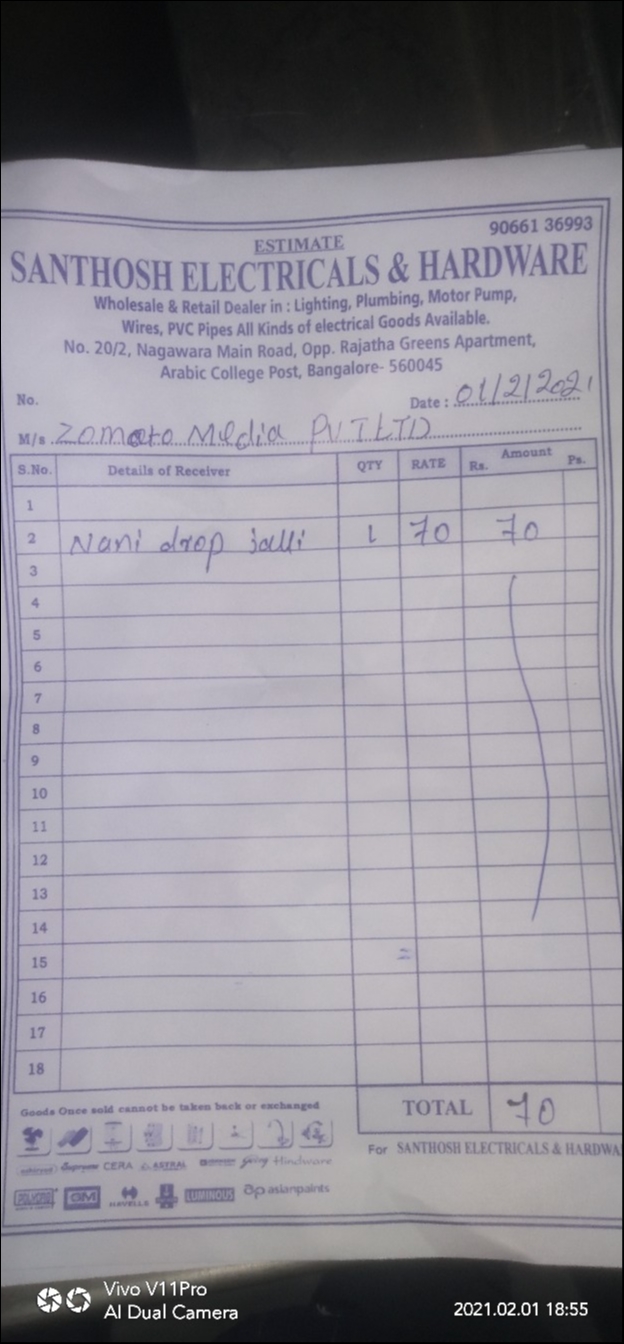 90661 36993
ESTIMATE
SANTHOSH ELECTRICALS & HARDWARE
Wholesale & Retail Dealer in : Lighting, Plumbing, Motor Pump,
Wires, PVC Pipes All Kinds of electrical Goods Available.
No. 20/2, Nagawara Main Road, Opp. Rajatha Greens Apartment,
Arabic College Post, Bangalore- 560045
No.
Date : 01/2/2021
M/s. Zomato Media PVT LTD
S.No. Details of Receiver QTY RATE Amount Rs. Ps.
1
2 Nani drop jalli 1 70 70
3
4
5
6
7
8
9
10
11
12
13
14
15
16
17
18
Goods Once sold cannot be taken back or exchanged
TOTAL 70
For SANTHOSH ELECTRICALS & HARDWA
Supreme CERA ASTRAL Hindware
GM HAVELLS LUMINOUS ap asianpaints
Vivo V11Pro
AI Dual Camera
2021.02.01 18:55